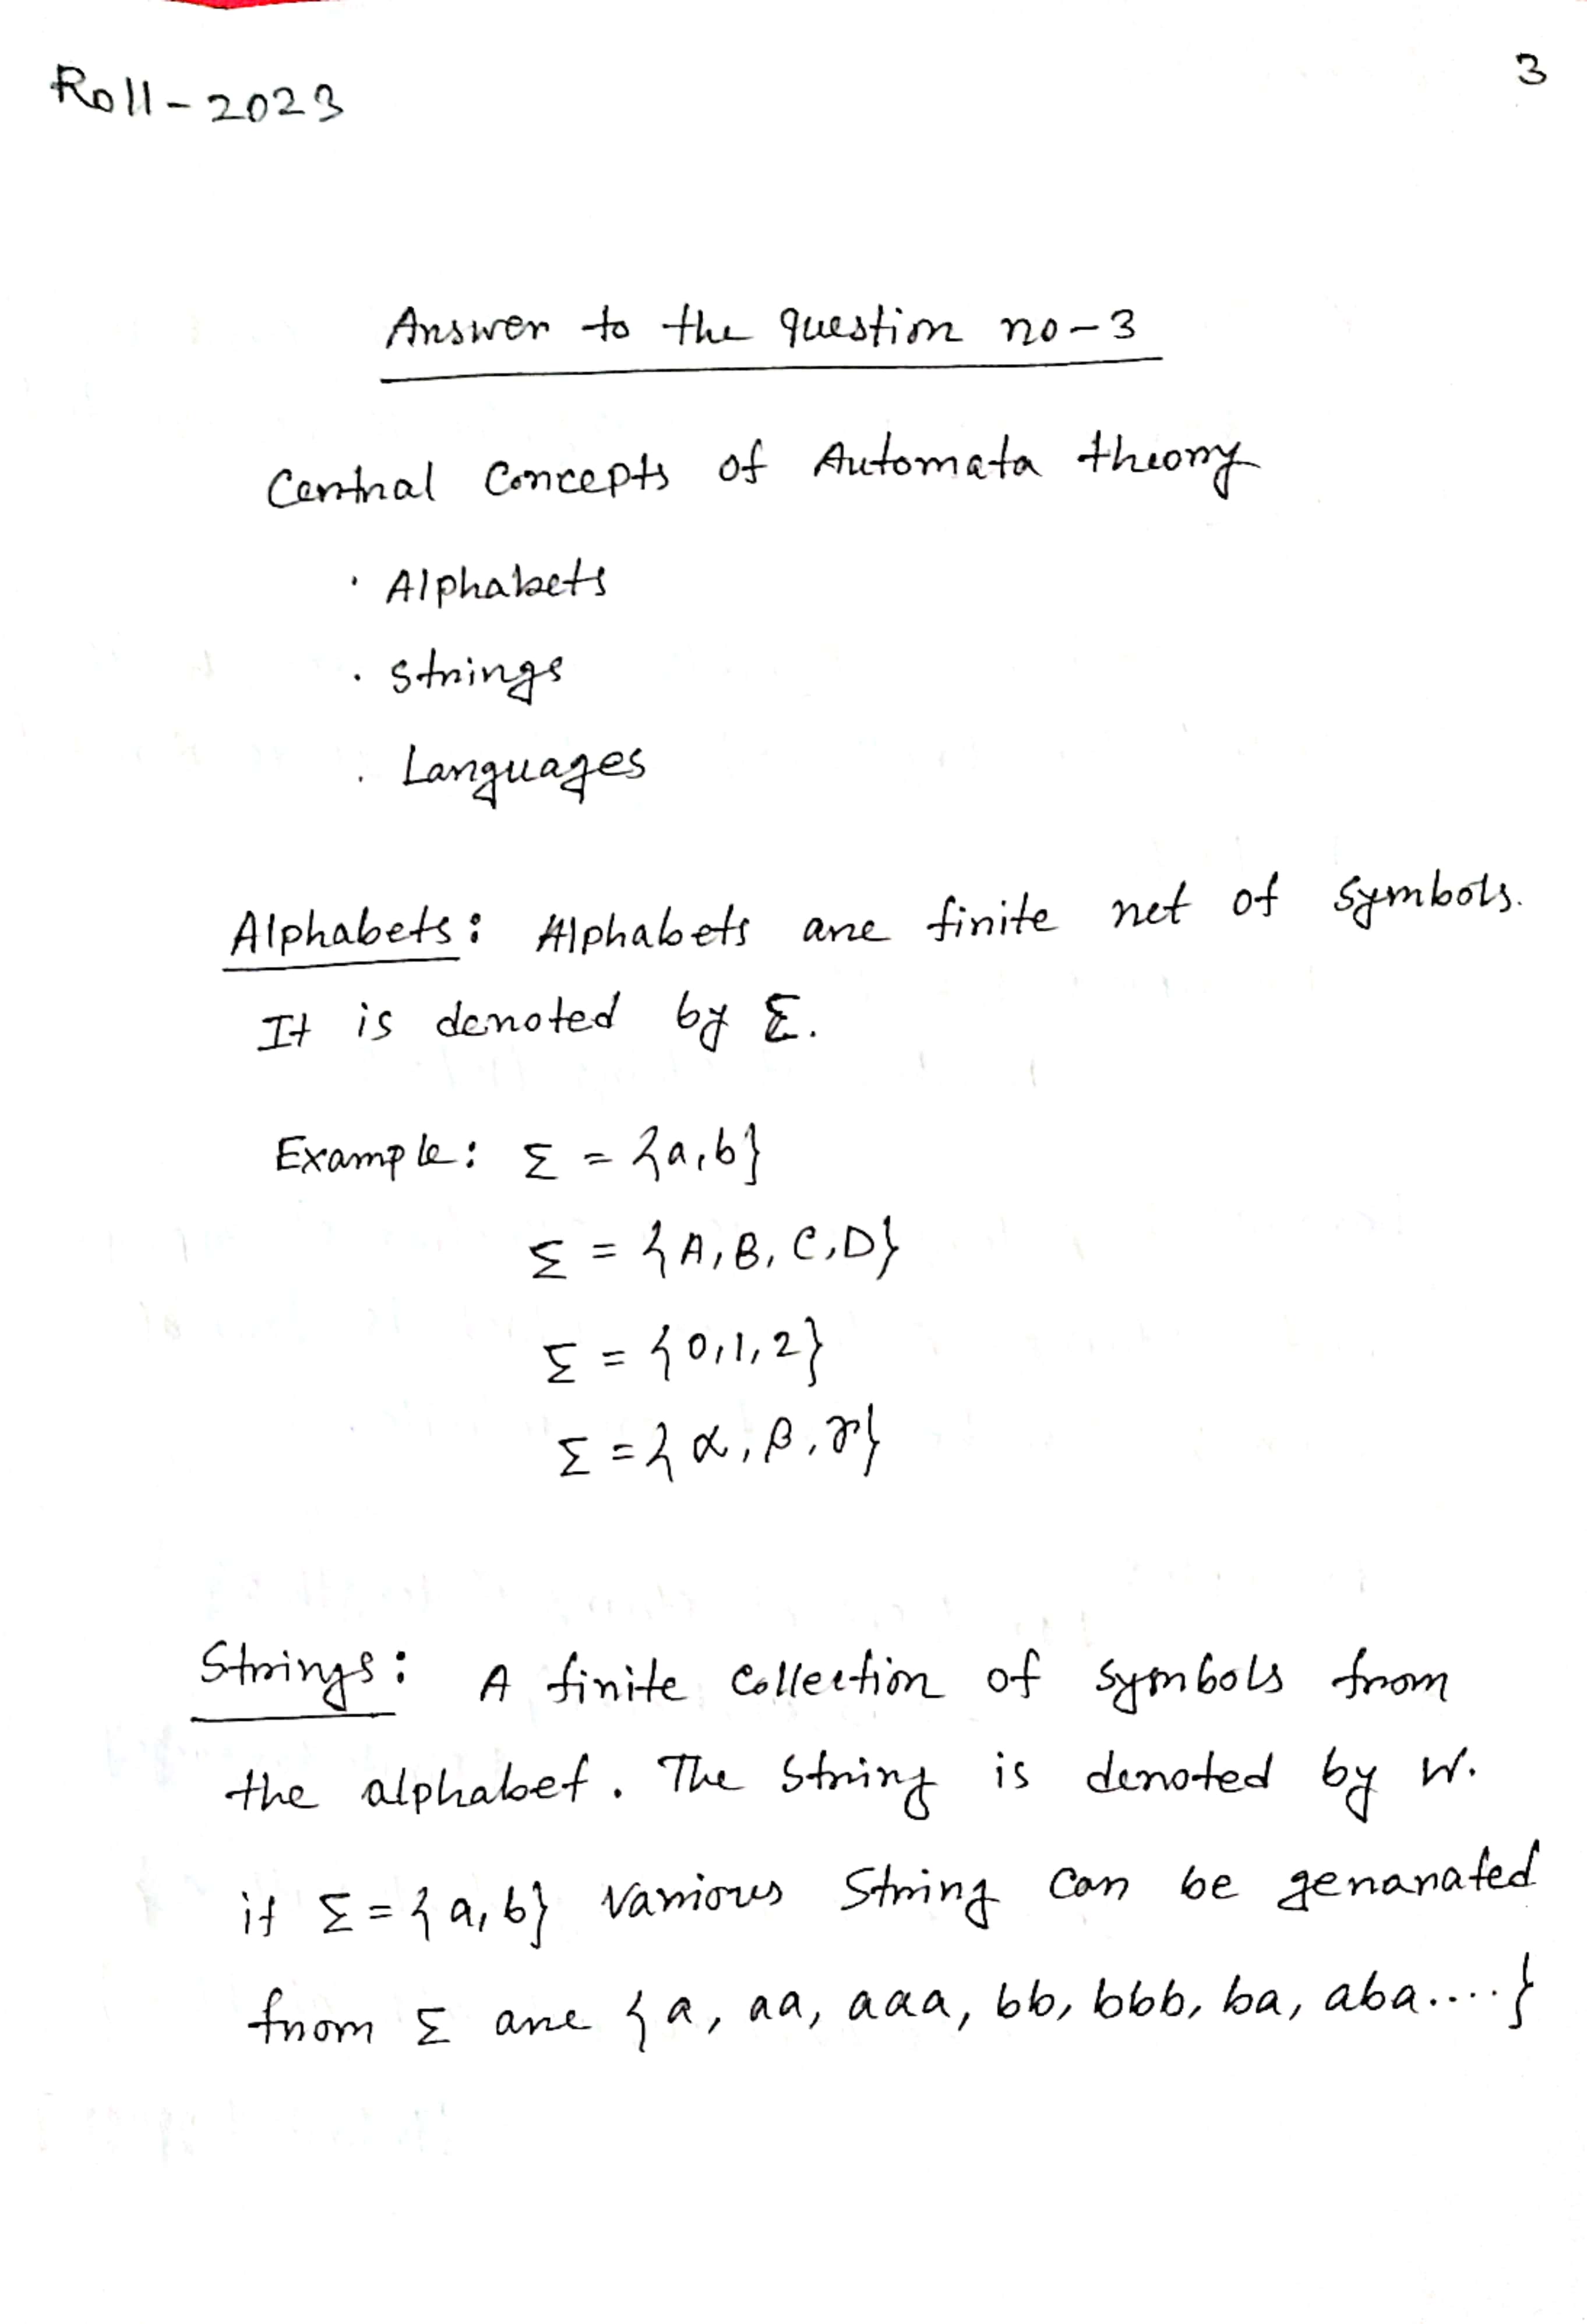 Roll-2023
3
Answer to the question no-3
Central Concepts of Automata theory
· Alphabets
· Strings
· Languages
Alphabets: Alphabets are finite net of symbols.
It is denoted by Σ.
Example: Σ = {a,b}
Σ = {A, B, C, D}
Σ = {0,1,2}
Σ = {α, β, γ}
Strings: A finite collection of symbols from
the alphabet. The String is denoted by W.
if Σ = {a, b} various String can be genarated
from Σ are {a, aa, aaa, bb, bbb, ba, aba....}